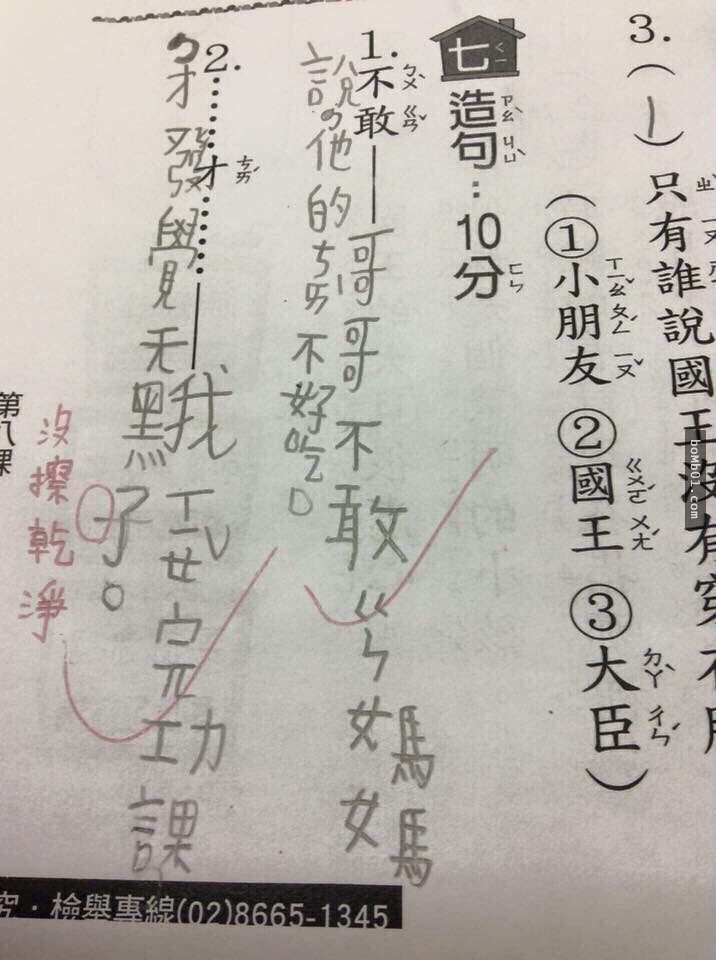 3.(1)只有誰說國王沒有穿
(①小朋友 ②國王 ③大臣)
七 造句:10分
1.不敢——哥哥不敢ㄍㄣ媽媽
說,他的ㄘㄞ不好吃。
2.……才……——我完功課
,才發覺天黑了。
沒擦乾淨
第八課
究‧檢舉專線(02)8665-1345
bomb01.com